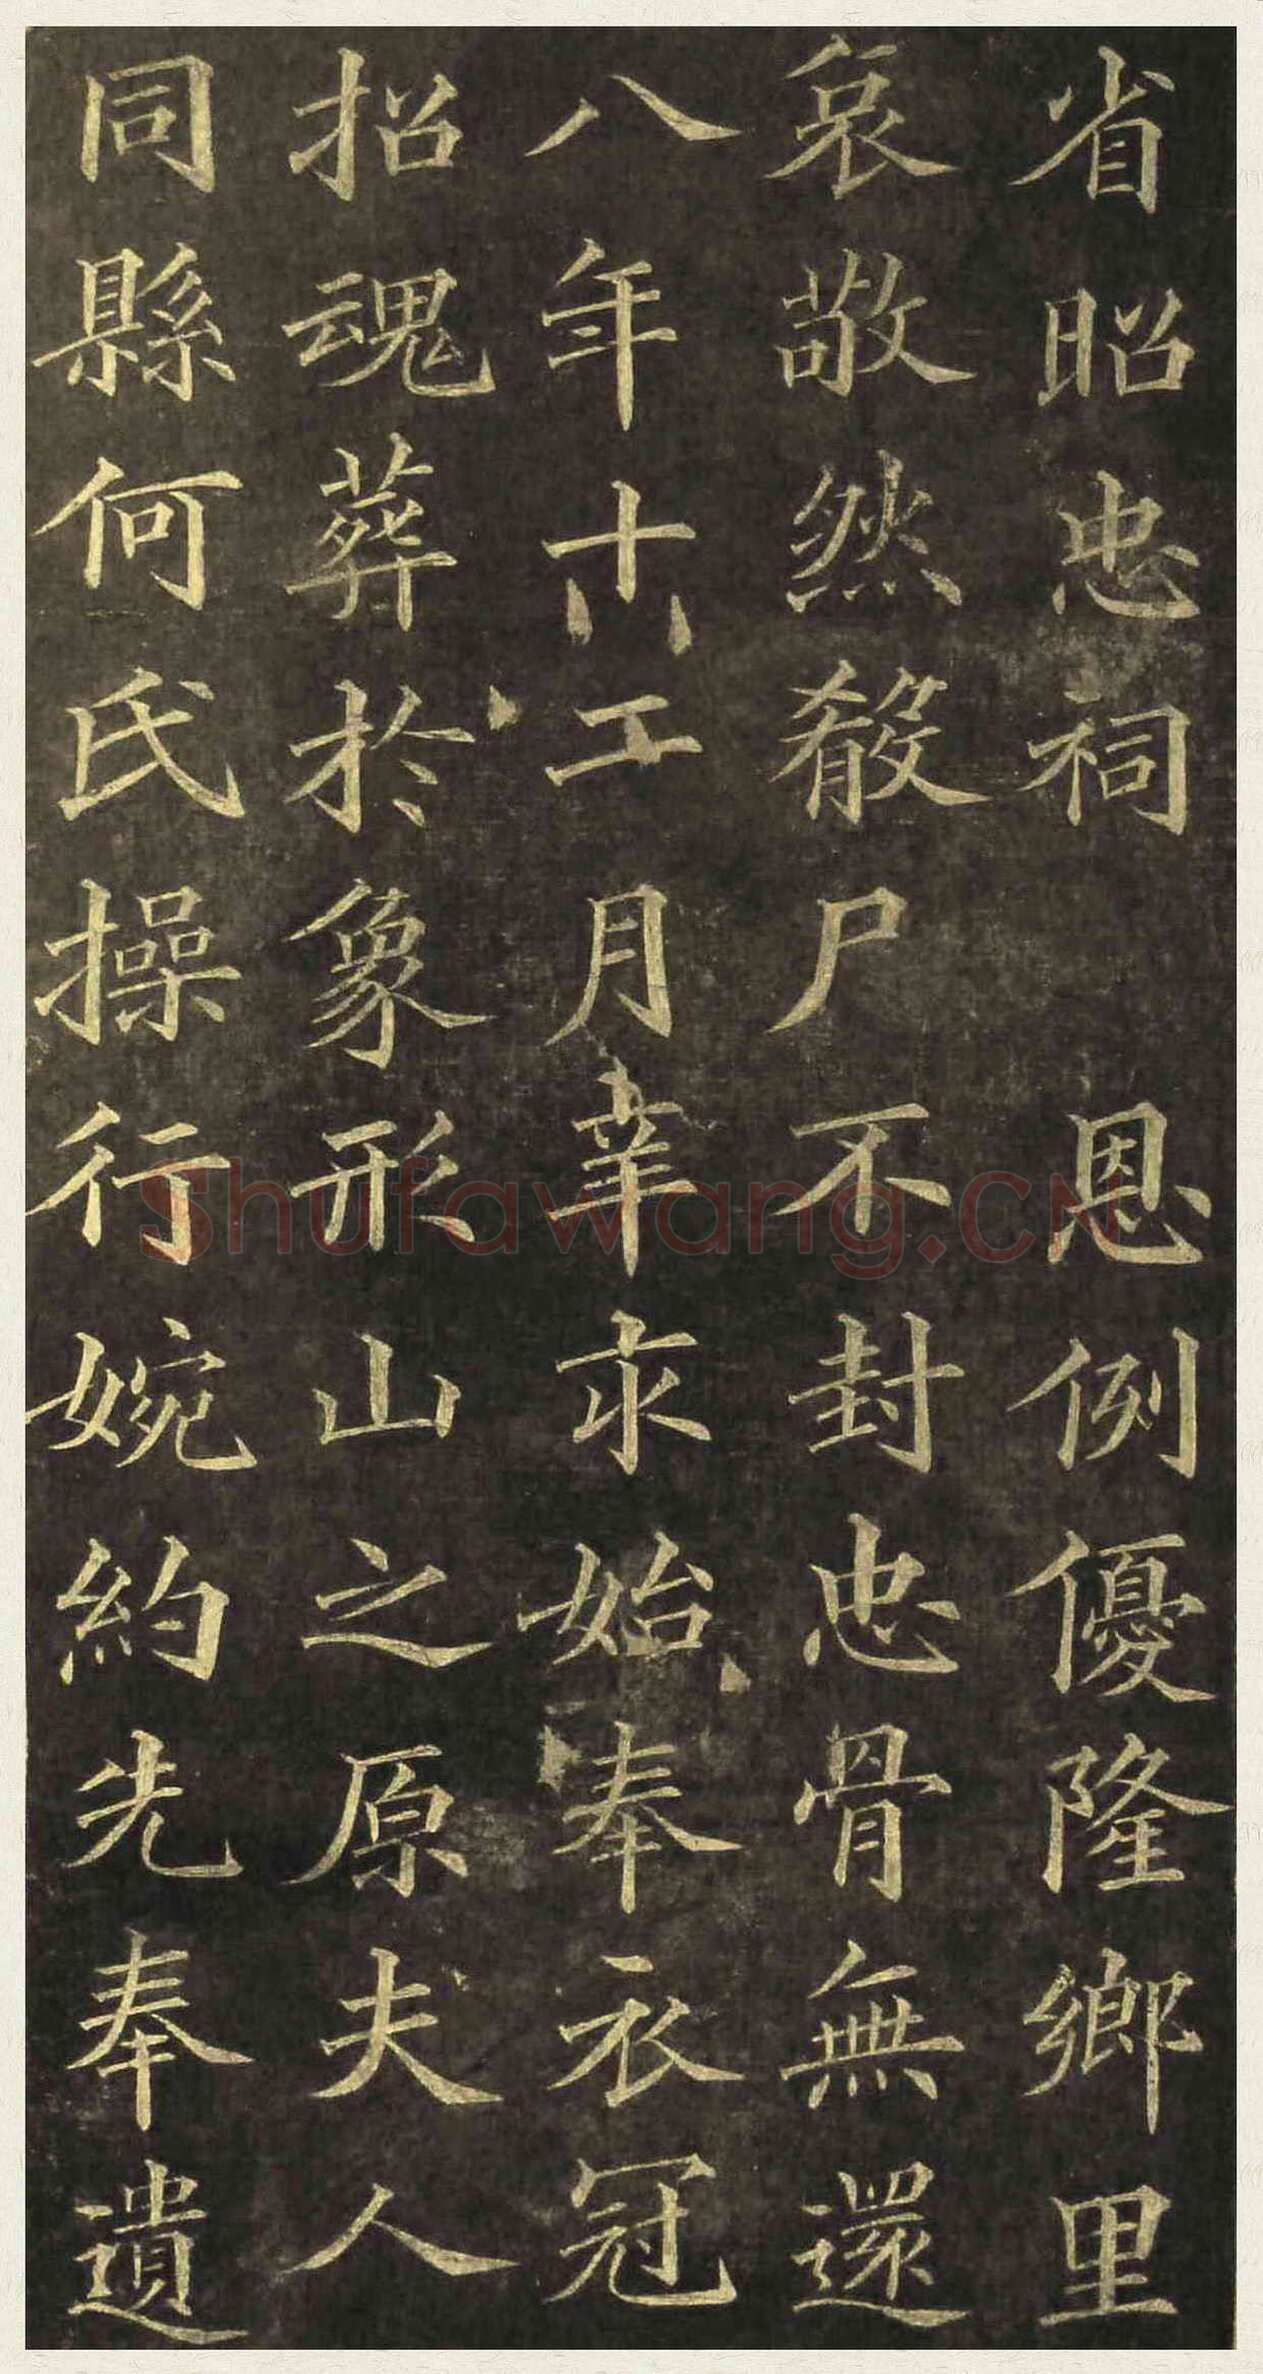 省昭忠祠 恩例優隆鄉里
哀敬然殽尸不封忠骨無還
八年十月辛始奉衣冠
招魂葬於象形山之原夫人
同縣何氏操行婉約先奉遺
Shufawang.CN